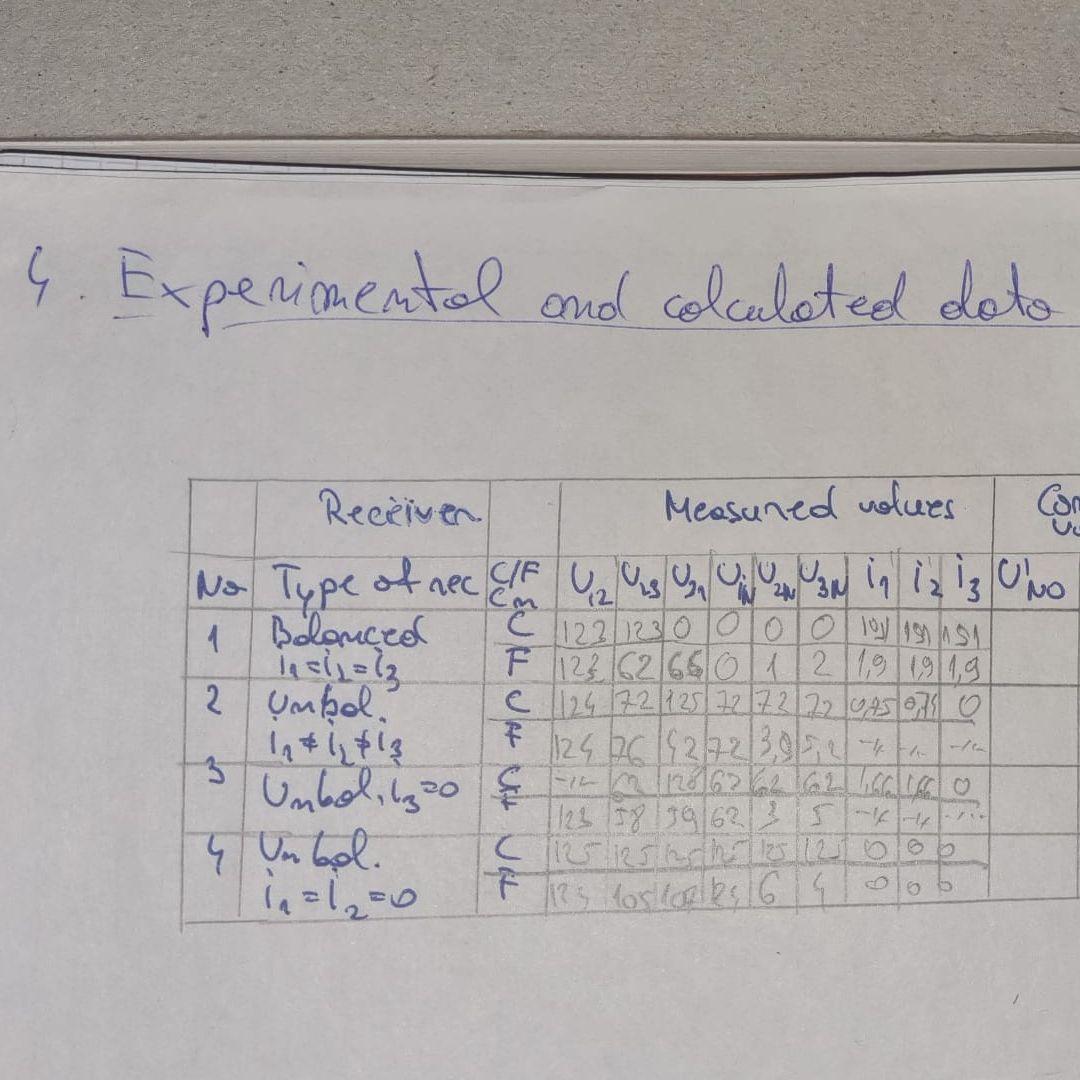 4. Experimental and calculated data
Receiver Measured values
No Type of rec C/F U12 U23 U31 U1N U2N U3N i1 i2 i3 U'NO
1 Balanced C 123 123 0 0 0 0 191 191 191
i1=i2=i3 F 123 62 66 0 1 2 1,9 1,9 1,9
2 Unbal. C 124 72 125 72 72 72 0,75 0
i1≠i2≠i3 F 124 76 42 72 3,9 5,2 -"- -"- -"-
3 Unbal. i3=0 C -"- 62 128 62 62 62 1,66 1,66 0
F 123 58 59 62 3 5 -"- -"- -"-
4 Unbal. C 125 125 125 125 125 125 0 0 0
i1=i2=0 F 105 6 4 0 0 0